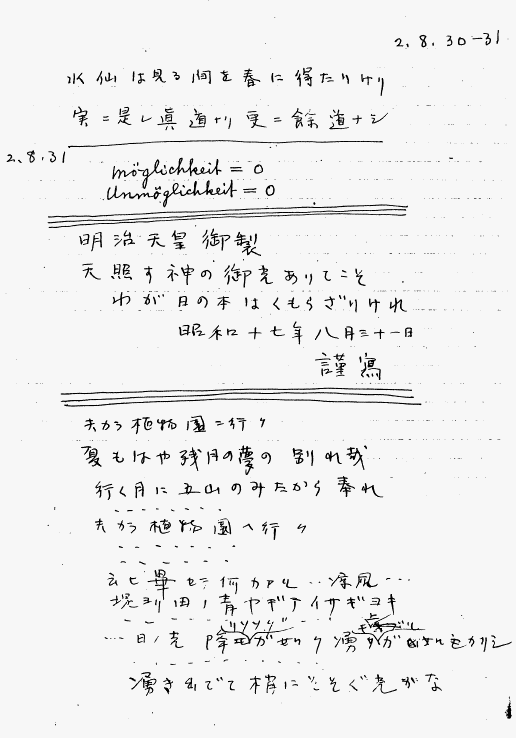 2.8.30-31
水仙は見る間を春に得たりけり
実ニ是レ眞道ナリ更ニ餘道ナシ
2.8.31
möglichkeit = 0
Unmöglichkeit = 0
明治天皇御製
天照す神の御光ありてこそ
わが日の本はくもらざりけれ
昭和十七年八月三十一日
謹寫
夫カラ植物園ニ行ク
夏もはや残月の夢の別れ哉
行く月に五山のみたから奉れ
夫カラ植物園へ行ク
云ヒ畢セテ何カアル‥涼風…
堤ヨリ田ノ青ヤギテイサギヨキ
…日ノ光
湧き出でて梢にそそぐ光かな